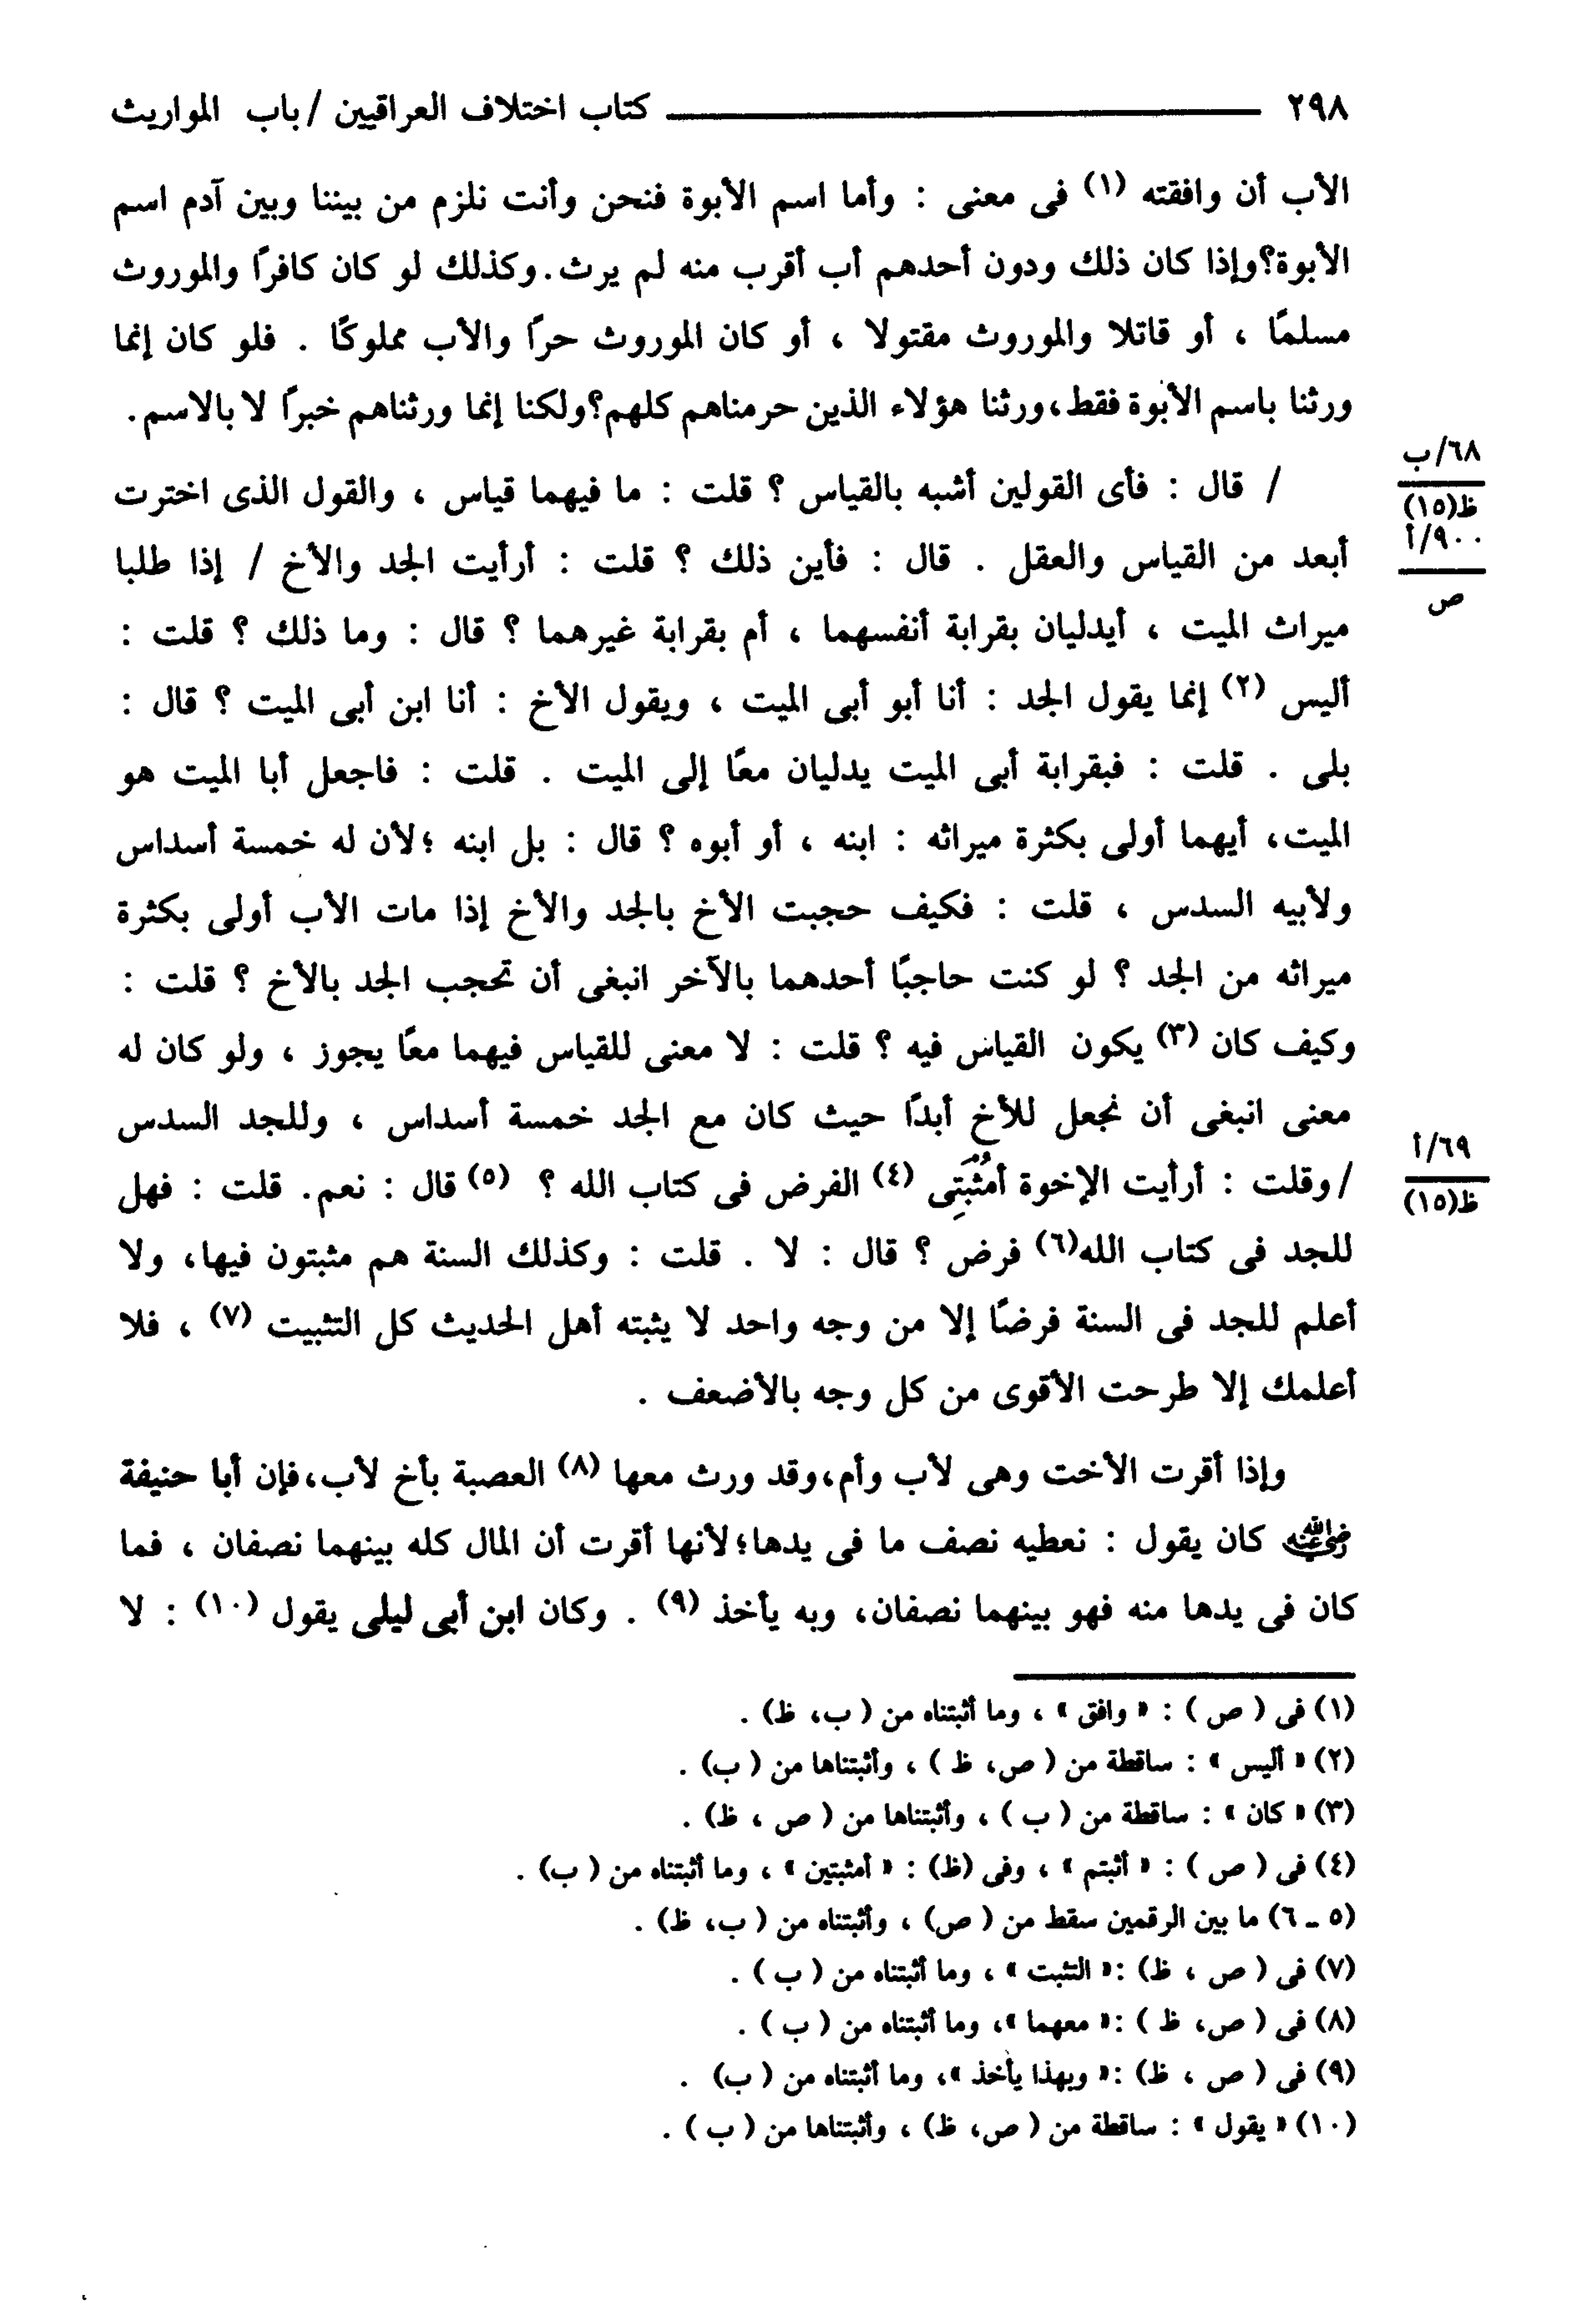 ٢٩٨ ــــــــــــــــــــــــــــــــ كتاب اختلاف العراقيين / باب المواريث
الأب أن وافقته (١) فى معنى : وأما اسم الأبوة فنحن وأنت نلزم من بيننا وبين آدم اسم
الأبوة؟وإذا كان ذلك ودون أحدهم أب أقرب منه لم يرث.وكذلك لو كان كافرًا والموروث
مسلمًا ، أو قاتلا والموروث مقتولا ، أو كان الموروث حرًا والأب مملوكًا . فلو كان إنما
ورثنا باسم الأبوة فقط،ورثنا هؤلاء الذين حرمناهم كلهم؟ولكنا إنما ورثناهم خبرًا لا بالاسم.
٦٨/ب
ظ(١٥)
٩٠٠/أ
ص
/ قال : فأى القولين أشبه بالقياس ؟ قلت : ما فيهما قياس ، والقول الذى اخترت
أبعد من القياس والعقل . قال : فأين ذلك ؟ قلت : أرأيت الجد والأخ / إذا طلبا
ميراث الميت ، أيدليان بقرابة أنفسهما ، أم بقرابة غيرهما ؟ قال : وما ذلك ؟ قلت :
أليس (٢) إنما يقول الجد : أنا أبو أبى الميت ، ويقول الأخ : أنا ابن أبى الميت ؟ قال :
بلى . قلت : فبقرابة أبى الميت يدليان معًا إلى الميت . قلت : فاجعل أبا الميت هو
الميت، أيهما أولى بكثرة ميراثه : ابنه ، أو أبوه ؟ قال : بل ابنه ؛لأن له خمسة أسداس
ولأبيه السدس ، قلت : فكيف حجبت الأخ بالجد والأخ إذا مات الأب أولى بكثرة
ميراثه من الجد ؟ لو كنت حاجبًا أحدهما بالآخر انبغى أن تحجب الجد بالأخ ؟ قلت :
وكيف كان (٣) يكون القياس فيه ؟ قلت : لا معنى للقياس فيهما معًا يجوز ، ولو كان له
معنى انبغى أن نجعل للأخ أبدًا حيث كان مع الجد خمسة أسداس ، وللجد السدس
٦٩/أ
ظ(١٥)
/ وقلت : أرأيت الإخوة أمُثْبَتِى (٤) الفرض فى كتاب الله ؟ (٥) قال : نعم. قلت : فهل
للجد فى كتاب الله(٦) فرض ؟ قال : لا . قلت : وكذلك السنة هم مثبتون فيها، ولا
أعلم للجد فى السنة فرضًا إلا من وجه واحد لا يثبته أهل الحديث كل التثبيت (٧) ، فلا
أعلمك إلا طرحت الأقوى من كل وجه بالأضعف .
وإذا أقرت الأخت وهى لأب وأم،وقد ورث معها (٨) العصبة بأخ لأب،فإن أبا حنيفة
رضي الله عنه كان يقول : نعطيه نصف ما فى يدها؛لأنها أقرت أن المال كله بينهما نصفان ، فما
كان فى يدها منه فهو بينهما نصفان، وبه يأخذ (٩) . وكان ابن أبى ليلى يقول (١٠) : لا
(١) فى ( ص ) : « وافق » ، وما أثبتناه من ( ب، ظ) .
(٢) « أليس » : ساقطة من ( ص، ظ ) ، وأثبتناها من ( ب) .
(٣) « كان » : ساقطة من ( ب ) ، وأثبتناها من ( ص ، ظ) .
(٤) فى ( ص ) : « أثبتم » ، وفى (ظ) : « أمثبتين » ، وما أثبتناه من ( ب) .
(٥ - ٦) ما بين الرقمين سقط من ( ص) ، وأثبتناه من ( ب، ظ) .
(٧) فى ( ص ، ظ) :« التثبت » ، وما أثبتناه من ( ب ) .
(٨) فى ( ص، ظ ) :« معهما »، وما أثبتناه من ( ب ) .
(٩) فى ( ص ، ظ) :« وبهذا يأخذ »، وما أثبتناه من ( ب) .
(١٠) « يقول » : ساقطة من ( ص، ظ) ، وأثبتناها من ( ب ) .